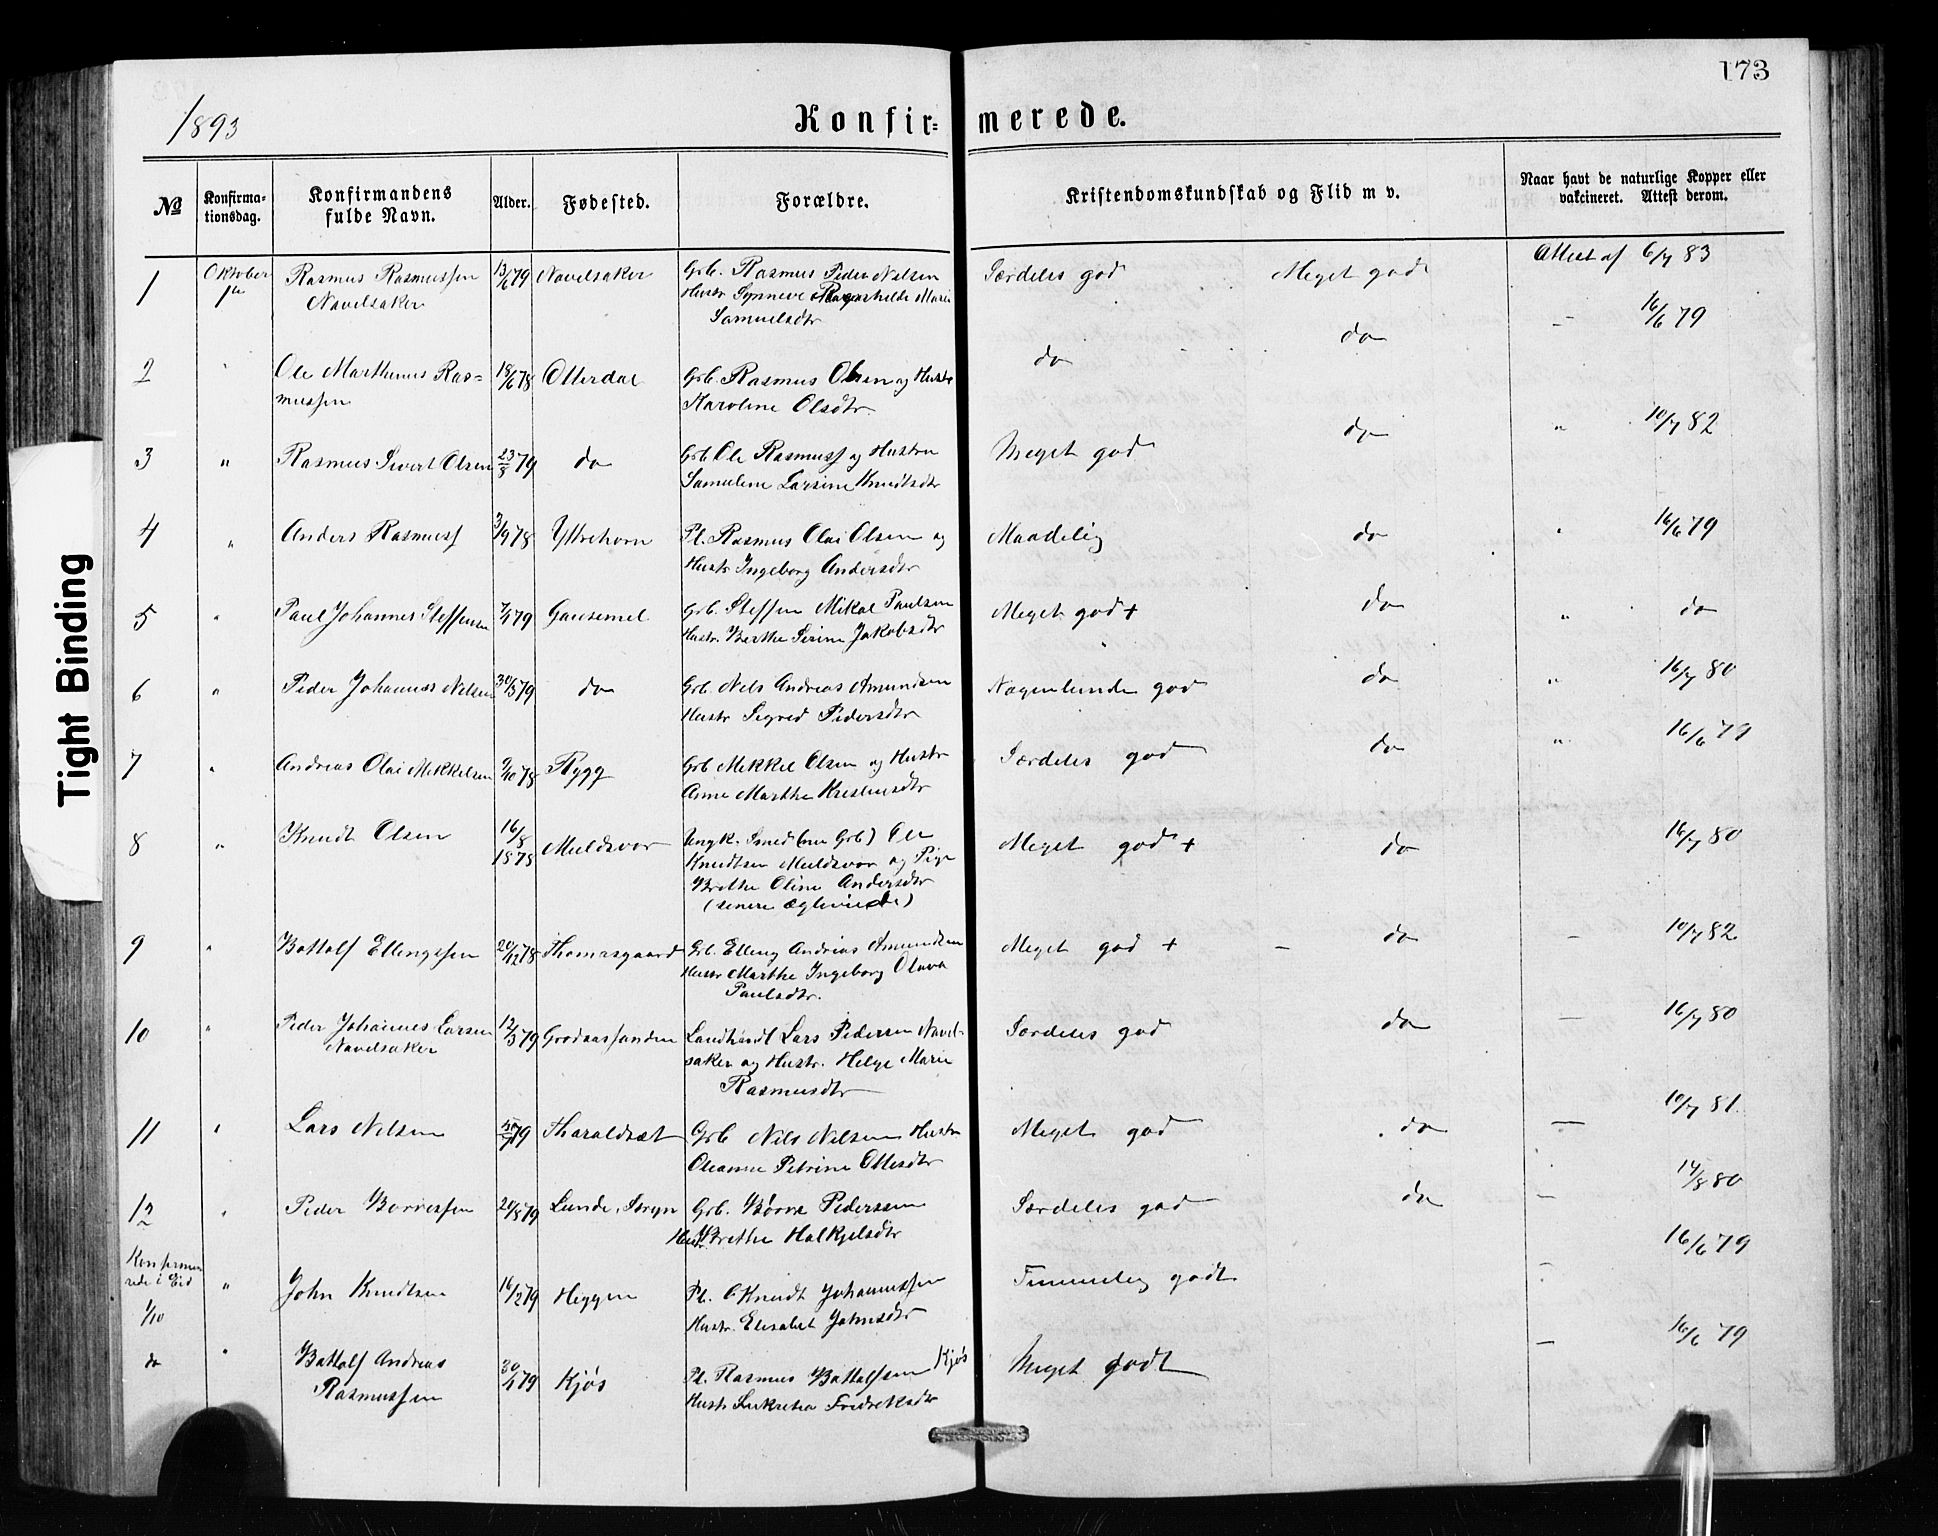 173
1893
Konfir= merede.
№ Konfirma-tionsdag. Konfirmandens fulde Navn. Alder. Fødested. Forældre. Kristendomskundskab og Flid m v. Naar havt de naturlige Kopper eller vakcineret. Attest derom.
1 Oktober 1ste Rasmus Rasmussen 13/6 79 Navelsaker Grb. Rasmus Peder Nilsen Særdeles god Meget god Attest af 6/7 83
Navelsaker Hustr Synneve Ragnhilde Marie
Samuelsdtr
2 " Ole Marthinus Ras= 18/6 78 Otterdal Grb. Rasmus Olsen og Hustr do do — 16/6 79
mussen Karoline Olsdtr
3 " Rasmus Sivert Olsen 23/8 79 do Grb Ole Rasmuss og Hustru Meget god do " 10/7 82
Samuline Larsine Knudtsdtr
4 " Anders Rasmuss 3/9 78 Yttrehorn Pl. Rasmus Olai Olsen og Maadelig do " 16/6 79
Hustr Ingeborg Andersdtr
5 " Paul Johannes Steffensen 7/1 79 Gausemel Grb. Steffen Mikal Paulsen Meget god + do " do
Hustr. Berthe Serine Jakobsdtr
6 " Peder Johannes Nilsen 30/3 79 do Grb. Nils Andreas Amundsen Nogenlunde god do " 16/7 80
Hustr Sigred Pedersdtr
7 " Andreas Olai Mikkelsen 9/10 78 Rygg Grb Mikkel Olsen og Hustr Særdeles god do " 16/6 79
Anne Marthe Kristensdtr
8 " Knudt Olsen 16/8 1878 Muldsvor Ungk. Smed (nu Grb) Ole Meget god + do 16/7 80
Knudtsen Muldsvor og Pige
Brethe Oline Andersdtr
(senere ægteviede)
9 " Bottolf Ellingssen 20/12 78 Thomasgaard Grb. Elling Andreas Amundsen Meget god + — do — 10/7 82
Hustr Marthe Ingeborg Olava
Paulsdtr.
10 " Peder Johannes Larsen 12/3 79 Grodaassanden Landhandl Lars Pedersen Navel- Særdeles god do — 16/7 80
Navelsaker saker og Hustr. Helge Marie
Rasmusdtr
11 " Lars Nilsen 79 Tharaldsæt Grb Nils Nilsen Hustr Meget god do — 10/7 81.
Oleanne Petrine Ottesdtr
12 " Peder Børressen 20/8 79 Lunde, Stryn Grb. Børre Pederssen Særdeles god do — 14/8 80
Hustr Brethe Halkjelsdtr
Konfirme-
rede i Eid
1/10 " John Knudtsen 16/2 79 Heggen Pl. Knudt Johannessen Temmelig godt — 16/6 79
Hustr. Elisabet Johnsdtr
do " Bottolf Andreas 30/1 79 Kjøs Pl. Rasmus Bottolfsen Kjøs Meget godt — 16/6 79
Rasmussen Hustr Lukretia Fredriksdtr
Tight Binding